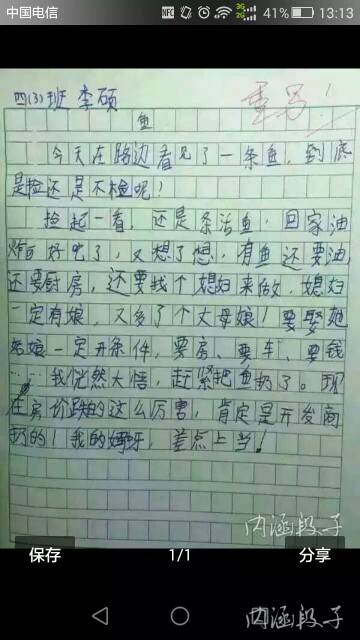 中国电信 NFC 3G 2G 41% 13:13
四(3)班 李硕
重写!
鱼
今天在路边看见了一条鱼,到底
是捡还是不捡呢!
捡起一看,还是条活鱼,回家油
炸可好吃了,又想了想,有鱼还要油
还要厨房,还要找个媳妇来做,媳妇
一定有娘,又多了个丈母娘!要娶她
姑娘一定开条件,要房、要车、要钱
……我恍然大悟,赶紧把鱼扔了。现
在房价跌的这么厉害,肯定是开发商
扔的!我的妈呀,差点上当!
内涵段子
保存 1/1 分享
内涵段子